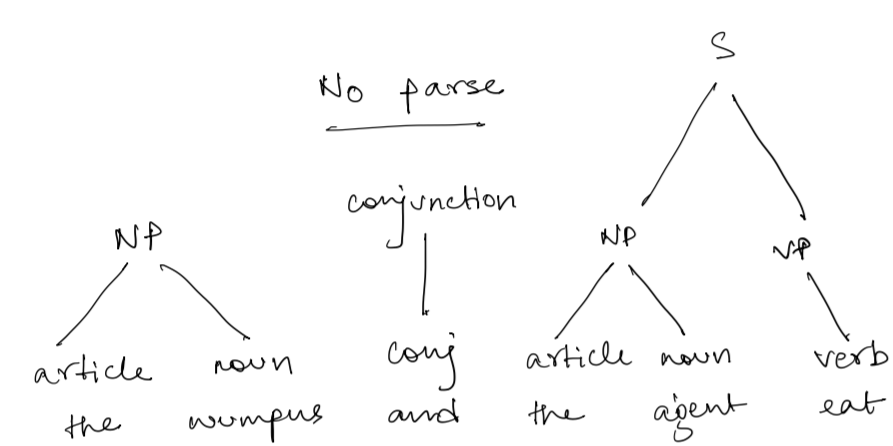 S
No parse
conjunction
NP NP VP
article noun conj article noun verb
the wumpus and the agent eat